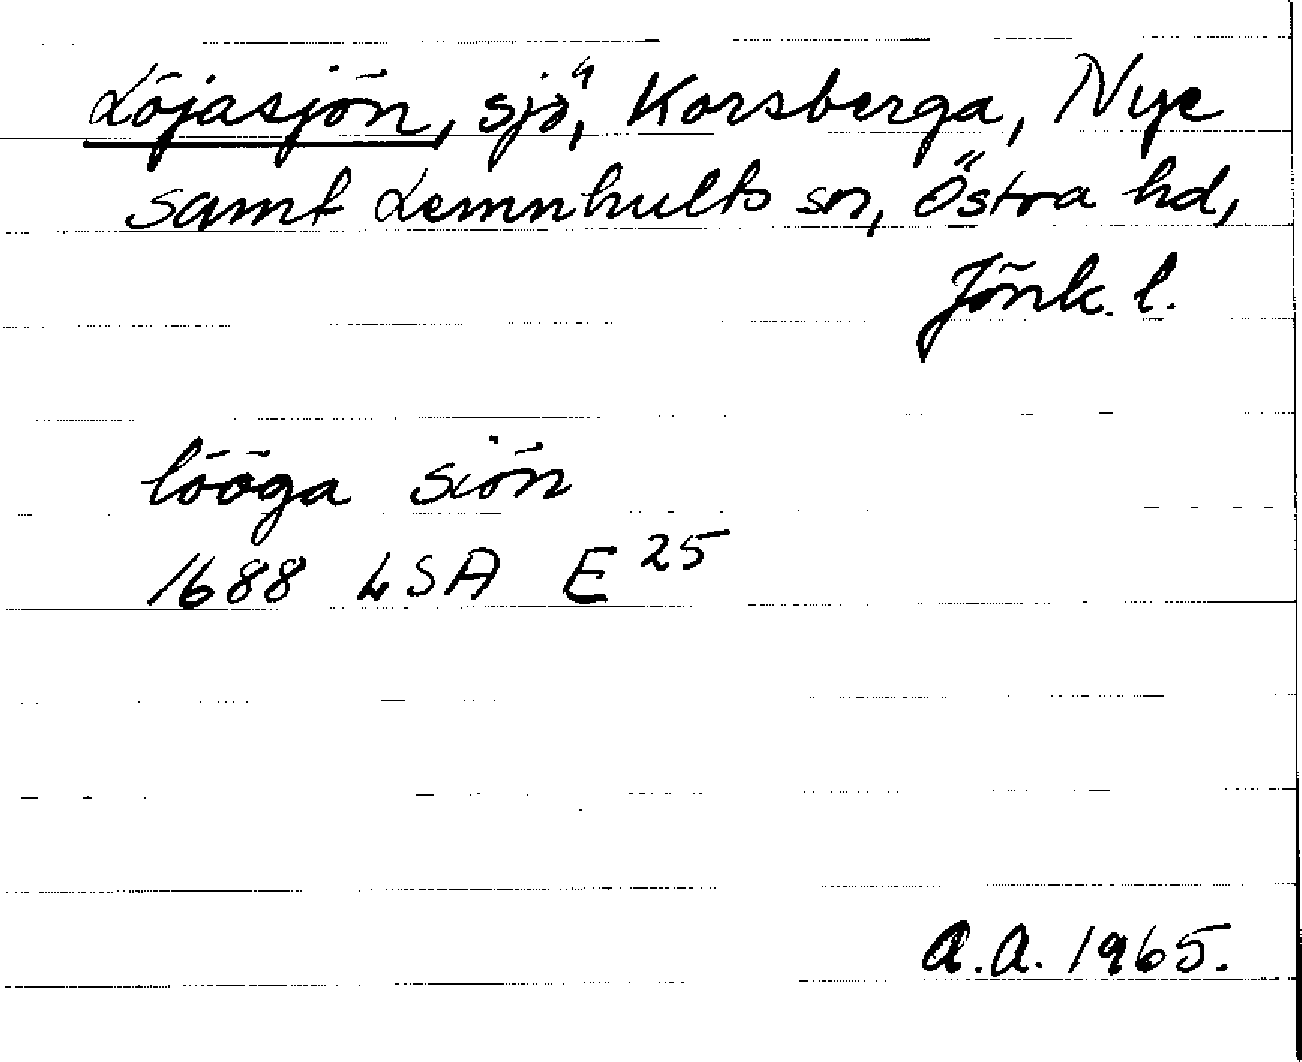 Löjasjön, sjö, Korsberga, Nye
samt Lemnhults sn, Östra hd,
Jönk. l.
lööga siön
1688 LSA E 25
A.A. 1965.